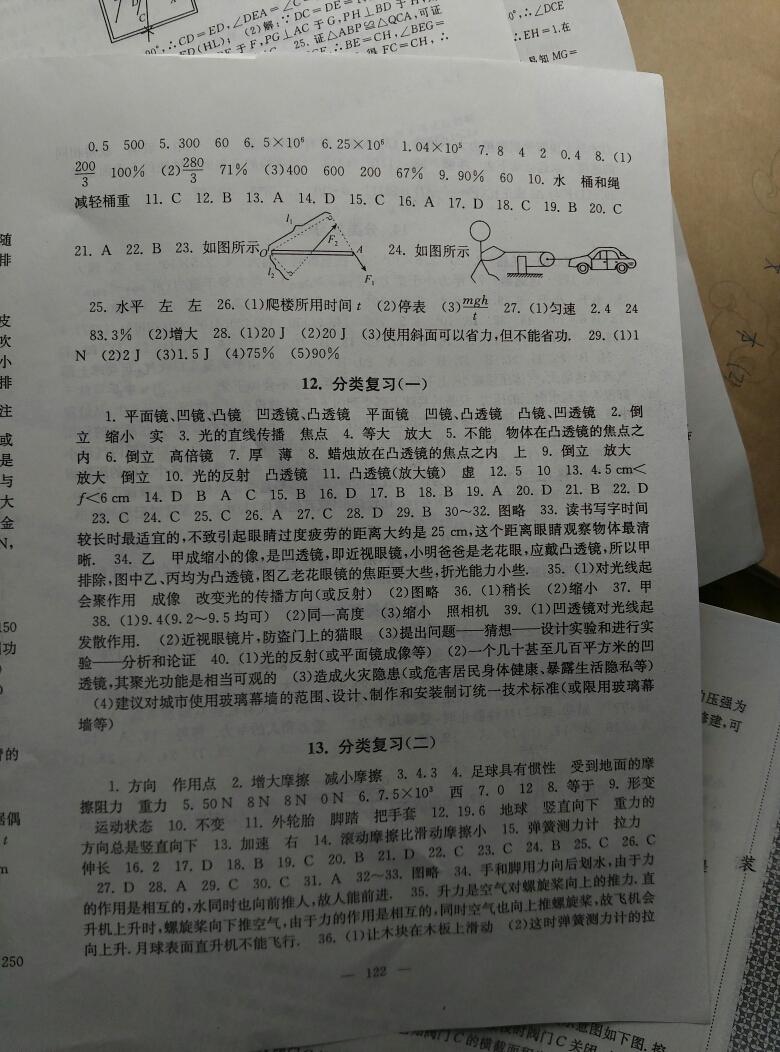 ∴CD=ED,∠DEA=∠C
ED(HL); (2)解:∵DC=DE=
于F,PG⊥AC于G,PH⊥BD于H
25. 证△ABP≌△QCA,可证
∴BE=CH,∠BEG=
FC=CH,∴
0°,∴∠DCE
∴EH=1.在
易知MG=
0.5 500 5. 300 60 6. 5×10⁶ 6.25×10⁶ 1.04×10⁵ 7. 8 4 2 0.4 8. (1)
200/3 100% (2)280/3 71% (3)400 600 200 67% 9. 90% 60 10. 水 桶和绳
减轻桶重 11. C 12. B 13. A 14. D 15. C 16. A 17. D 18. C 19. B 20. C
21. A 22. B 23. 如图所示 O l₁ l₂ F₂ A F₁ 24. 如图所示
25. 水平 左 左 26. (1)爬楼所用时间 t (2)停表 (3)mgh/t 27. (1)匀速 2.4 24
83.3% (2)增大 28. (1)20 J (2)20 J (3)使用斜面可以省力,但不能省功. 29. (1)1
N (2)2 J (3)1.5 J (4)75% (5)90%
12. 分类复习(一)
1. 平面镜、凹镜、凸镜 凹透镜、凸透镜 平面镜 凹镜、凸透镜 凸镜、凹透镜 2. 倒
立 缩小 实 3. 光的直线传播 焦点 4. 等大 放大 5. 不能 物体在凸透镜的焦点之
内 6. 倒立 高倍镜 7. 厚 薄 8. 蜡烛放在凸透镜的焦点之内 上 9. 倒立 放大
放大 倒立 10. 光的反射 凸透镜 11. 凸透镜(放大镜) 虚 12. 5 10 13. 4.5 cm<
f<6 cm 14. D B A C 15. B 16. D 17. B 18. B 19. A 20. D 21. B 22. D
23. C 24. C 25. C 26. A 27. C 28. D 29. B 30~32. 图略 33. 读书写字时间
较长时最适宜的,不致引起眼睛过度疲劳的距离大约是 25 cm,这个距离眼睛观察物体最清
晰. 34. 乙 甲成缩小的像,是凹透镜,即近视眼镜,小明爸爸是老花眼,应戴凸透镜,所以甲
排除,图中乙、丙均为凸透镜,图乙老花眼镜的焦距要大些,折光能力小些. 35. (1)对光线起
会聚作用 成像 改变光的传播方向(或反射) (2)图略 36. (1)稍长 (2)缩小 37. 甲
38. (1)9.4(9.2~9.5均可) (2)同一高度 (3)缩小 照相机 39. (1)凹透镜对光线起
发散作用. (2)近视眼镜片,防盗门上的猫眼 (3)提出问题——猜想——设计实验和进行实
验——分析和论证 40. (1)光的反射(或平面镜成像等) (2)一个几十甚至几百平方米的凹
透镜,其聚光功能是相当可观的 (3)造成火灾隐患(或危害居民身体健康、暴露生活隐私等)
(4)建议对城市使用玻璃幕墙的范围、设计、制作和安装制订统一技术标准(或限用玻璃幕
墙等)
13. 分类复习(二)
1. 方向 作用点 2. 增大摩擦 减小摩擦 3. 4.3 4. 足球具有惯性 受到地面的摩
擦阻力 重力 5. 50 N 8 N 8 N 0 N 6. 7.5×10³ 西 7. 0 12 8. 等于 9. 形变
运动状态 10. 不变 11. 外轮胎 脚踏 把手套 12. 19.6 地球 竖直向下 重力的
方向总是竖直向下 13. 加速 右 14. 滚动摩擦比滑动摩擦小 15. 弹簧测力计 拉力
伸长 16. 2 17. D 18. B 19. C 20. B 21. D 22. C 23. C 24. B 25. C 26. C
27. D 28. A 29. C 30. C 31. A 32~33. 图略 34. 手和脚用力向后划水,由于力
的作用是相互的,水同时也向前推人,故人能前进. 35. 升力是空气对螺旋桨向上的推力.直
升机上升时,螺旋桨向下推空气,由于力的作用是相互的,同时空气也向上推螺旋桨,故飞机会
向上升.月球表面直升机不能飞行. 36. (1)让木块在木板上滑动 (2)这时弹簧测力计的拉
— 122 —
随
排
皮
吹
小
排
注
或
是
与
大
金
N,
150
功
的
偶
t
m
250
压强为
修建,可
装
意图如下图.
阀门C关闭
阀门C的横截面